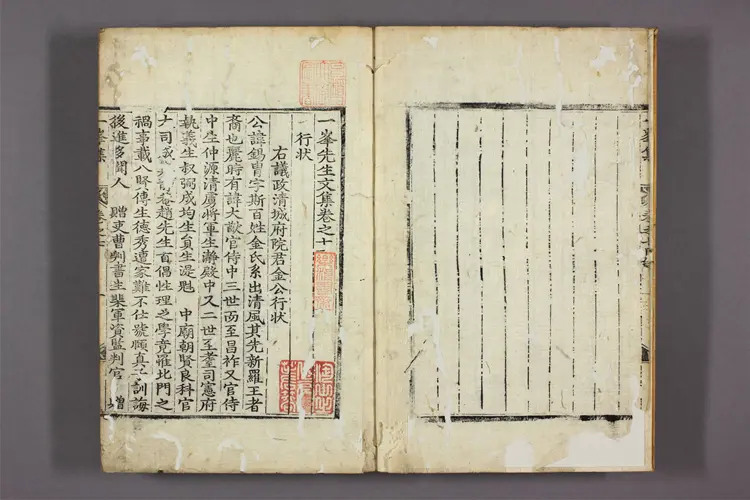 一峯先生文集卷之十
行狀
右議政清城府院君金公行狀
公諱錫胄字斯百姓金氏系出清風其先新羅王者
裔也麗時有諱大猷官侍中三世而至昌祚又官侍
中生仲源清虜將軍生瀞殿中又二世至耋司憲府
執義生叔弼成均生員生湜魁 中廟朝賢良科官
大司成 菴趙先生首倡性理之學竟罹北門之
禍事載八賢傳生德秀遭家難不仕號頤真 訓誨
後進多聞人 贈吏曹判書生棐軍資監判官 贈